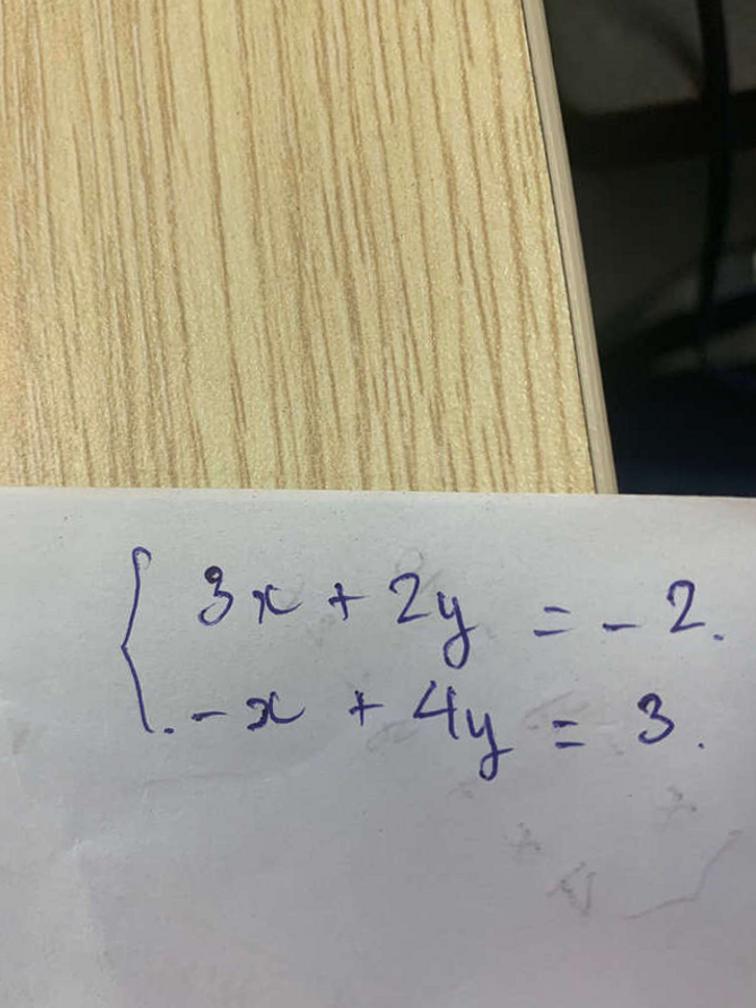 3x + 2y = - 2.
- x + 4y = 3.